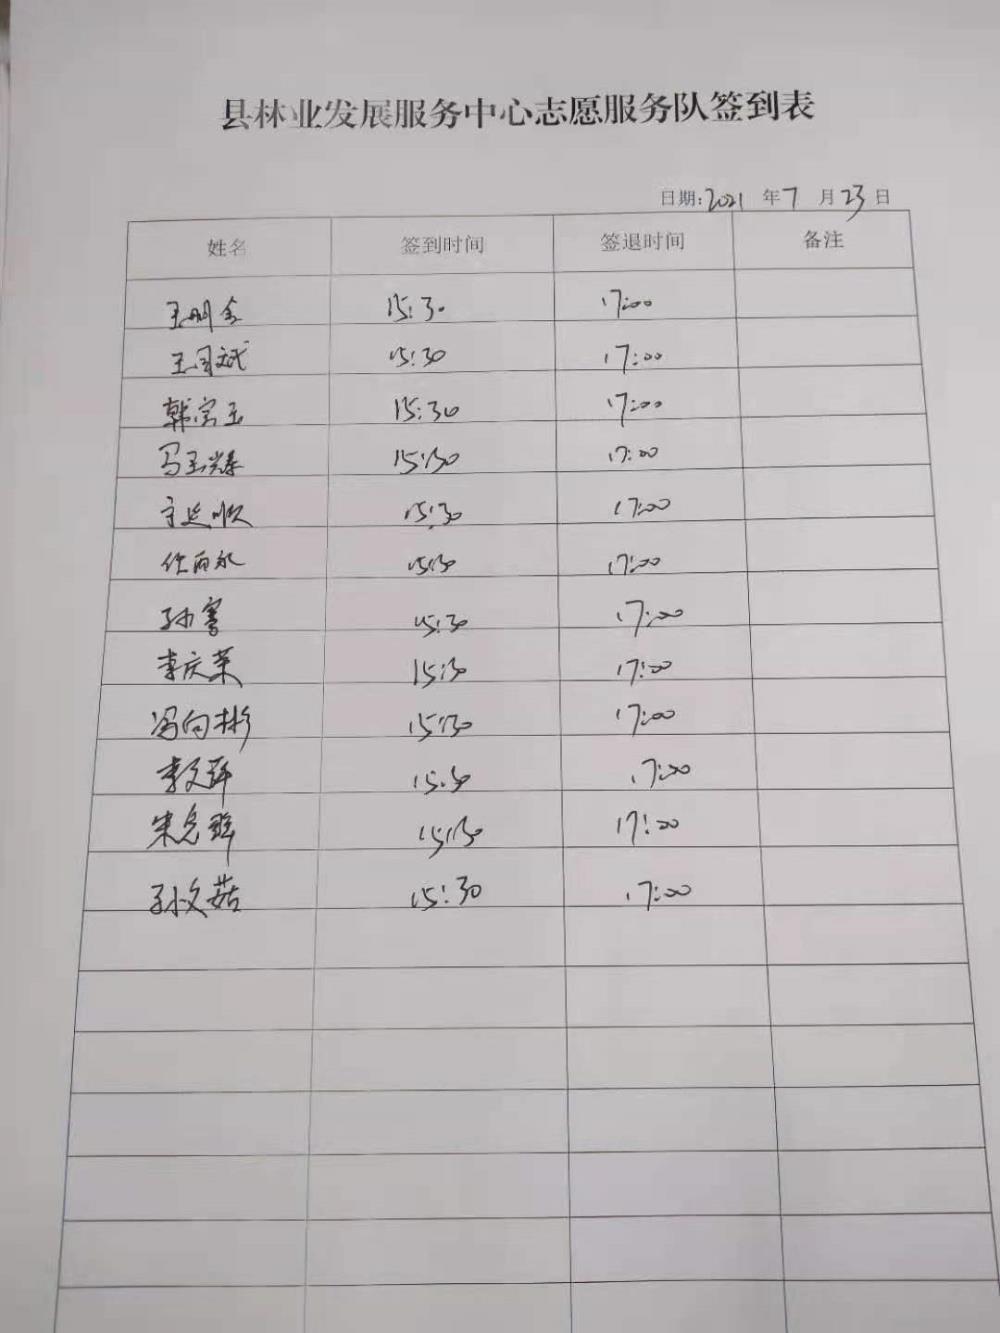 县林业发展服务中心志愿服务队签到表
日期:2021 年 7 月 23 日
姓名 签到时间 签退时间 备注
王明金 15:30 17:00
王国斌 15:30 17:00
韩宝玉 15:30 17:00
马玉 15:30 17:00
延顺 15:30 17:00
任 15:30 17:00
孙 15:30 17:00
李庆荣 15:30 17:00
冯向彬 15:30 17:00
李文 15:30 17:00
朱 15:30 17:00
孙文茹 15:30 17:00